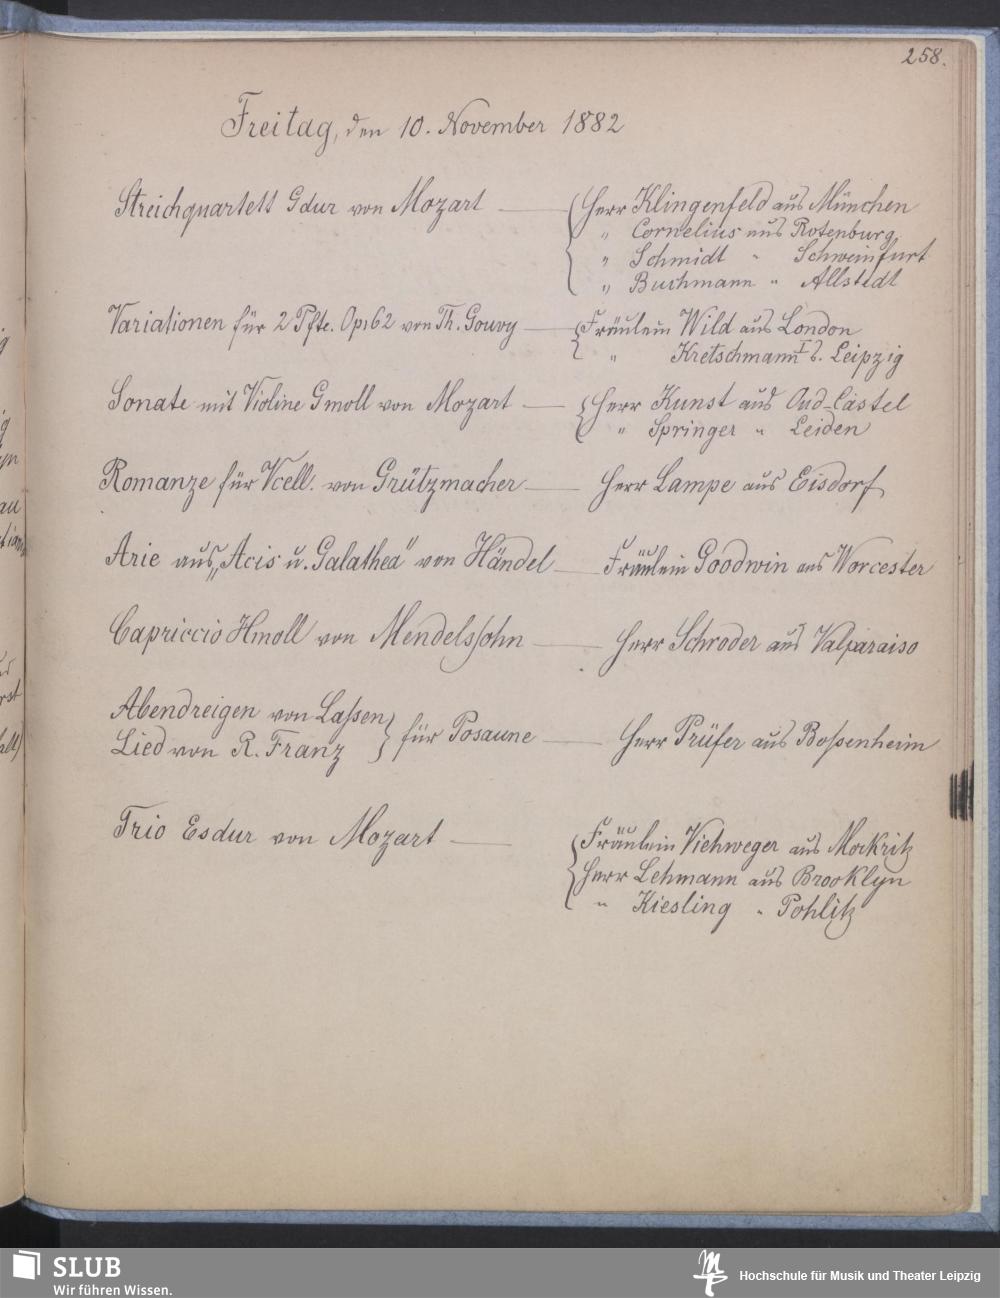 258.
Freitag, den 10. November 1882
Streichquartett Gdur von Mozart — Herr Klingenfeld aus München
" Cornelius aus Rotenburg
" Schmidt " Schweinfurt
" Buchmann " Allstedt
Variationen für 2 Pfte. Op. 62 von Th. Gouvy — Fräulein Wild aus London
" Kretschmann I a. Leipzig
Sonate mit Violine Gmoll von Mozart — Herr Kunst aus Oud-Castel
" Springer " Leiden
Romanze für Vcell. von Grützmacher — Herr Lampe aus Eisdorf
Arie aus „Acis u. Galathea" von Händel — Fräulein Goodwin aus Worcester
Capriccio Hmoll von Mendelssohn — Herr Schroder aus Valparaiso
Abendreigen von Lassen
Lied von R. Franz } für Posaune — Herr Prüfer aus Bossenheim
Trio Esdur von Mozart — Fräulein Viehweger aus Mockritz
Herr Lehmann aus Brooklyn
" Kiesling " Pohlitz
SLUB
Wir führen Wissen.
Hochschule für Musik und Theater Leipzig